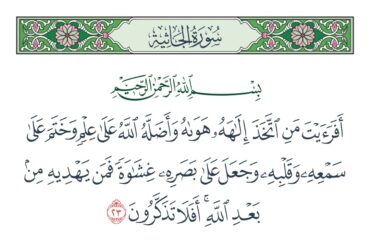 سُورَةُ الجَاثِيَةِ
بِسْمِ اللَّهِ الرَّحْمَٰنِ الرَّحِيمِ
أَفَرَءَيْتَ مَنِ ٱتَّخَذَ إِلَٰهَهُۥ هَوَىٰهُ وَأَضَلَّهُ ٱللَّهُ عَلَىٰ عِلْمٍ وَخَتَمَ عَلَىٰ
سَمْعِهِۦ وَقَلْبِهِۦ وَجَعَلَ عَلَىٰ بَصَرِهِۦ غِشَٰوَةً فَمَن يَهْدِيهِ مِنۢ
بَعْدِ ٱللَّهِ ۚ أَفَلَا تَذَكَّرُونَ ٢٣